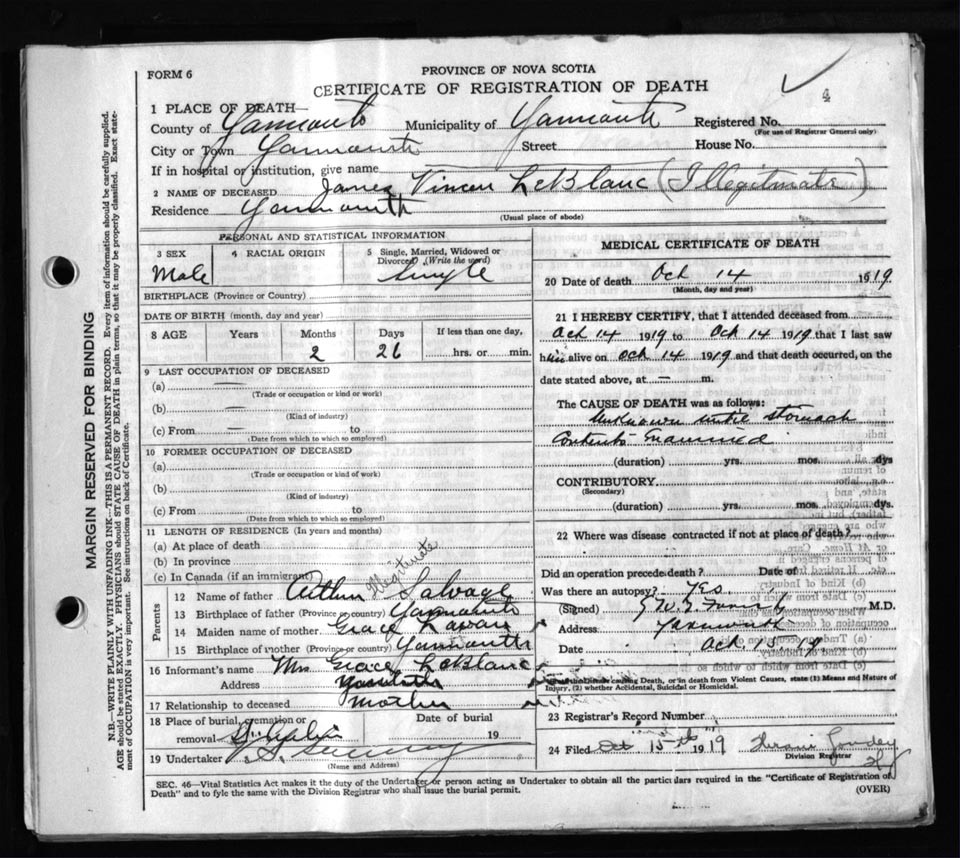 FORM 6
PROVINCE OF NOVA SCOTIA
CERTIFICATE OF REGISTRATION OF DEATH
4
1 PLACE OF DEATH—
County of Yarmouth Municipality of Yarmouth Registered No.
(For use of Registrar General only)
City or Town Yarmouth Street House No.
If in hospital or institution, give name
2 NAME OF DECEASED James Vincen LeBlanc (Illegitmate)
Residence Yarmouth
(Usual place of abode)
MARGIN RESERVED FOR BINDING
N.B.—WRITE PLAINLY WITH UNFADING INK—THIS IS A PERMANENT RECORD. Every item of information should be carefully supplied.
AGE should be stated EXACTLY. PHYSICIANS should STATE CAUSE OF DEATH in plain terms, so that it may be properly classified. Exact state-
ment of OCCUPATION is very important. See instructions on back of Certificate.
PERSONAL AND STATISTICAL INFORMATION
3 SEX
Male
4 RACIAL ORIGIN
5 Single, Married, Widowed or
Divorced (Write the word)
Single
BIRTHPLACE (Province or Country)
DATE OF BIRTH (month, day and year)
8 AGE Years Months Days If less than one day,
2 26 hrs. or min.
9 LAST OCCUPATION OF DECEASED
(a) —
(Trade or occupation or kind or work)
(b) —
(Kind of industry)
(c) From to
(Date from which to which so employed)
10 FORMER OCCUPATION OF DECEASED
(a)
(Trade or occupation or kind of work)
(b)
(Kind of industry)
(c) From to
(Date from which to which so employed)
11 LENGTH OF RESIDENCE (In years and months)
(a) At place of death
(b) In province
(c) In Canada (if an immigrant)
Illegitimate
Parents
12 Name of father Arthur Salvage
13 Birthplace of father (Province or country) Yarmouth
14 Maiden name of mother Grace
15 Birthplace of mother (Province or country) Yarmouth
16 Informant's name Mrs Grace LeBlanc
Address Yarmouth
17 Relationship to deceased Mother
18 Place of burial, cremation or Date of burial
removal 19
19 Undertaker
(Name and Address)
MEDICAL CERTIFICATE OF DEATH
20 Date of death Oct 14 1919
(Month, day and year)
21 I HEREBY CERTIFY, that I attended deceased from
Oct 14 1919 to Oct 14 1919 that I last saw
him alive on Oct 14 1919 and that death occurred, on the
date stated above, at — m.
The CAUSE OF DEATH was as follows:
Unknown until stomach
contents examined
(duration) yrs. mos. dys
CONTRIBUTORY
(Secondary)
(duration) yrs. mos. dys
22 Where was disease contracted if not at place of death?
Did an operation precede death? Date of
Was there an autopsy? Yes
(Signed) M.D.
Address Yarmouth
Date Oct 1919
Injury, (2) whether Accidental, Suicidal or Homicidal.
23 Registrar's Record Number
24 Filed Oct 15th 1919
Division Registrar
SEC. 46—Vital Statistics Act makes it the duty of the Undertaker or person acting as Undertaker to obtain all the particulars required in the "Certificate of Registration of
Death" and to fyle the same with the Division Registrar who shall issue the burial permit. (OVER)